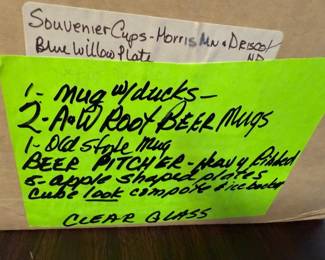 Souvenier Cups - Morris Mn & Driscoll
Blue Willow Plate ND
1 - mug w/ducks -
2 - A+W Root Beer Mugs
1 - Old style mug
BEER PITCHER - Heavy Ribbed
5 - apple shaped plates
cube look composite ice bucket
CLEAR GLASS